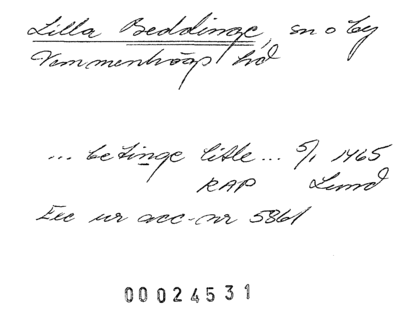 Lilla Beddinge, sn o by
Vemmenhögs hd
... betinge litle ... 5/1 1465
RAP Lund
Exc ur acc-nr 5861
00024531